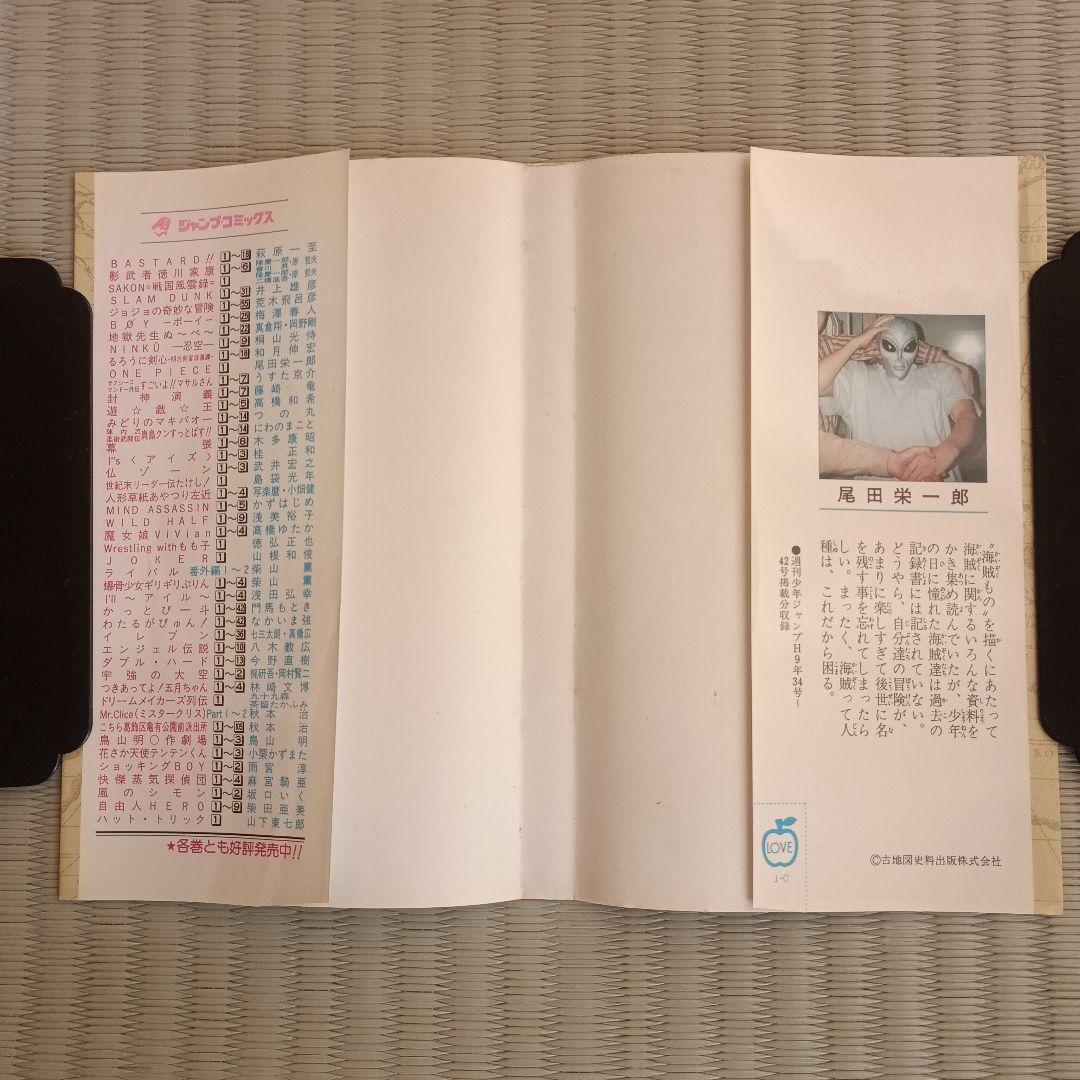 ジャンプ・コミックス
BASTARD!! 1〜18 萩原一至
影武者徳川家康 1〜6 隆慶一郎・原哲夫
SAKON=戦国風雲録= 1
SLAM DUNK 1〜31 井上雄彦
ジョジョの奇妙な冒険 1〜55 荒木飛呂彦
BØY—ボーイ— 1〜25 梅澤春人
地獄先生ぬ〜べ〜 1〜23 真倉翔・岡野剛
NINKŪ—忍空— 1〜9 桐山光侍
るろうに剣心-明治剣客浪漫譚- 1〜18 和月伸宏
ONE PIECE 1 尾田栄一郎
セクシーコマンドー外伝すごいよ!!マサルさん 1〜7 うすた京介
封神演義 1〜7 藤崎竜
遊☆戯☆王 1〜5 高橋和希
みどりのマキバオー 1〜14 つの丸
陣内流柔術武闘伝真島クンすっとばす!! 1〜14 にわのまこと
幕張 1〜8 木多康昭
I"s〈アイズ〉 1〜3 桂正和
仏ゾーン 1〜3 武井宏之
世紀末リーダー伝たけし! 1 島袋光年
人形草紙あやつり左近 1〜4 写楽麿・小畑健
MIND ASSASSIN 1〜5 かずはじめ
WILD HALF 1〜9 浅美裕子
魔女娘ViVian 1〜4 高橋ゆたか
Wrestling withもも子 1 徳弘正也
JOKER 1 山根和俊
ライバル 番外編1〜2 柴山薫
爆骨少女ギリギリぷりん 1〜4 柴山薫
I'll〜アイル〜 1〜4 浅田弘幸
かっとび一斗 1〜42 門馬もとき
わたるがぴゅん! 1〜42 なかいま強
イレブン 1〜36 七三太朗・高橋広
エンジェル伝説 1〜10 八木教広
ダブル・ハード 1〜13 今野直樹
宇強の大空 1〜2 梶研吾・岡村賢二
つきあってよ!五月ちゃん 1〜4 林崎文博
ドリームメイカーズ列伝 1 九十九森 茶留たかふみ
Mr.Clice(ミスタークリス) Part1〜2 秋本治
こちら葛飾区亀有公園前派出所 1〜105 秋本治
鳥山明○作劇場 1〜3 鳥山明
花さか天使テンテンくん 1〜3 小栗かずまた
ショッキングBOY 1〜2 雨宮淳
快傑蒸気探偵団 1〜4 麻宮騎亜
風のシモン 1〜2 坂口いく
自由人HERO 1〜9 柴田亜美
ハット・トリック 1 山下東七郎
★各巻とも好評発売中!!
尾田栄一郎
"海賊もの"を描くにあたって
海賊に関するいろんな資料を
かき集め読んでいたが、少年
の日に憧れた海賊達は過去の
記録書には記されていない。
どうやら、自分達の冒険が、
あまりに楽しすぎて後世に名
を残す事を忘れてしまったら
しい。まったく、海賊って人
種は、これだから困る。
●週刊少年ジャンプH9年34号〜
42号掲載分収録
LOVE
J-C
©古地図史料出版株式会社